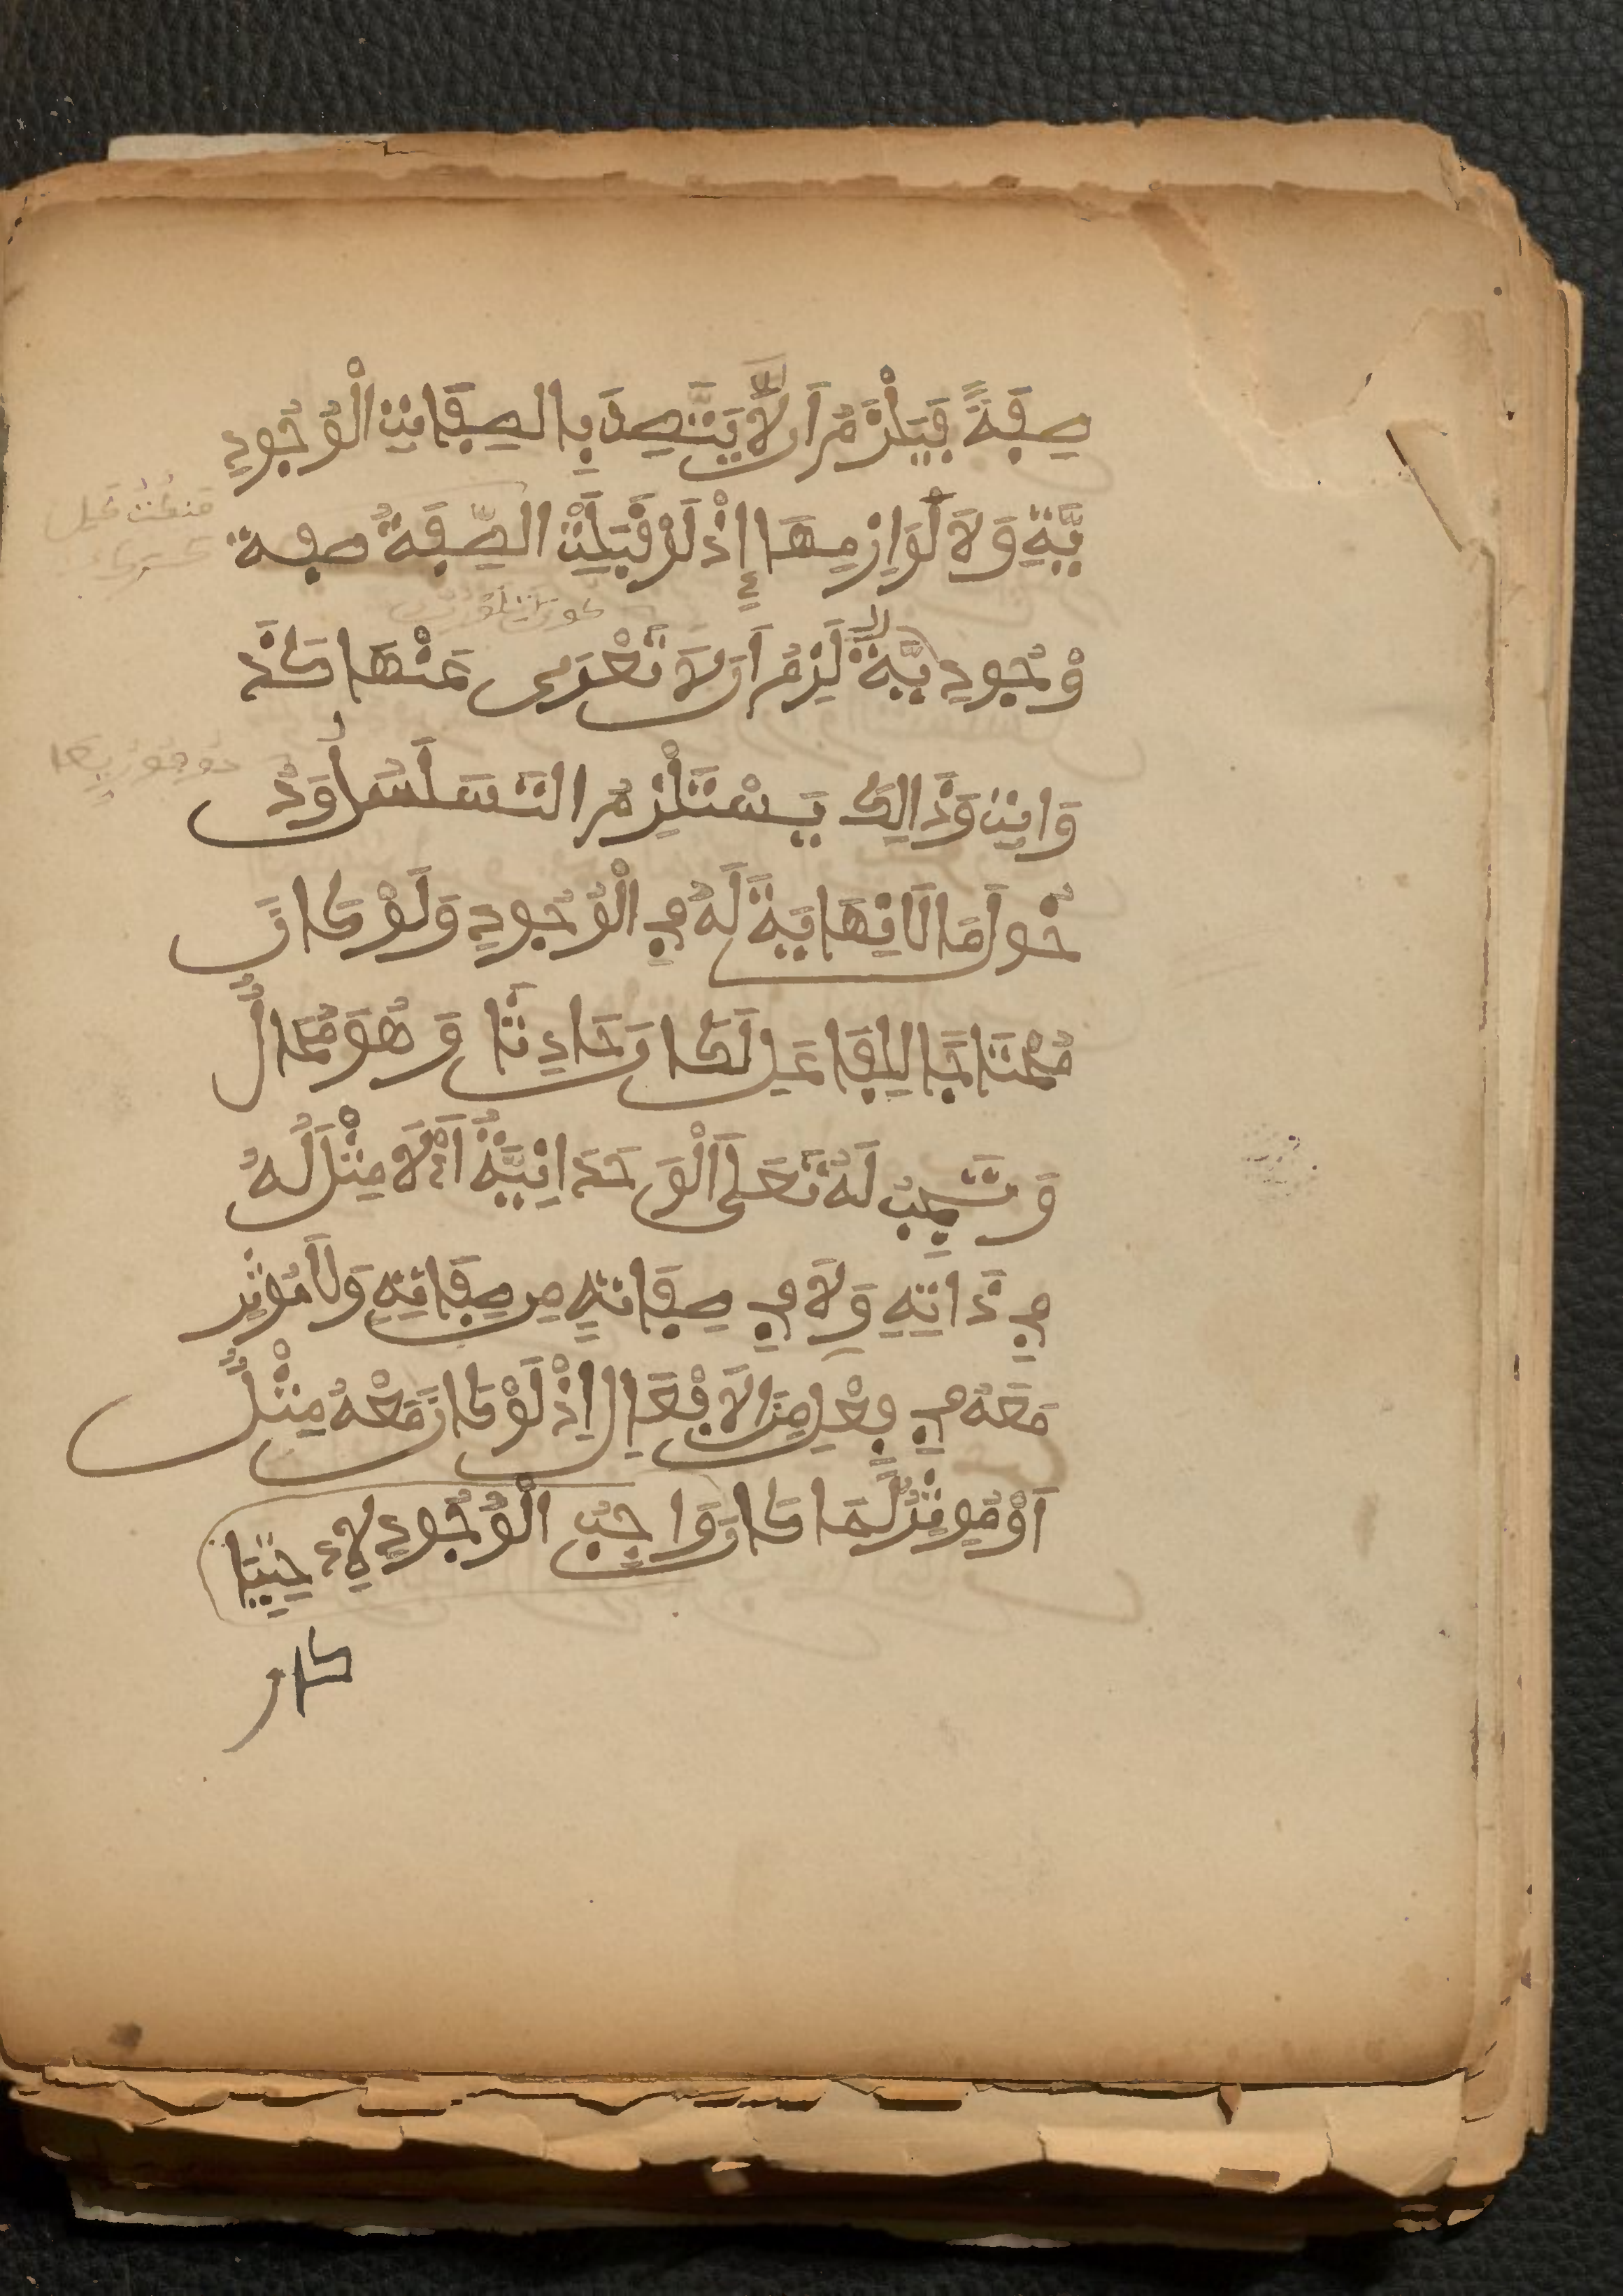 صِفَةً فَيَلْزَمُ اَن لَّا يَتَّصِفَ بِالصِفَاتِ الْوُجُودِ
يَّةِ وَلَا لَوَازِمِهَا إِذْ لَوْ قَبِلَتْ الصِّفَةُ صفة
وُجُودِيَّةً لَزِمَ اَن لَا تَعْرَى عَنْهَا كَالذَّ
وَاتِ وَذَالِكَ يَسْتَلْزِمُ التَسَلْسُلَ وَدُ
خُولَ مَا لَا نِهَايَةَ لَهُ فِي الْوُجُودِ وَلَوْ كَانَ
مُحْتَاجًا لِلْفَاعِلِ لَكَانَ حَادِثًا وَهُوَ مُحَالٌ
وَتَجِبُ لَهُ تَعَلَى اَلْوَحْدَانِيَّةُ اَيْ لَا مِثْلَ لَهُ
فِي ذَاتِهِ وَلَا فِي صِفَاتِهِ مِن صِفَاتِهِ وَلَا مُوثِرَ
مَعَهُ فِي فِعْلٍ مِنَ الَافْعَالِ اِذْ لَوْ كَانَ مَعْهُ مِثْلٌ
اَوْ مُوثِرٌ لَمَا كَانَ وَاجِبَ الْوُجُودِ لِاحْتِيَا
كان